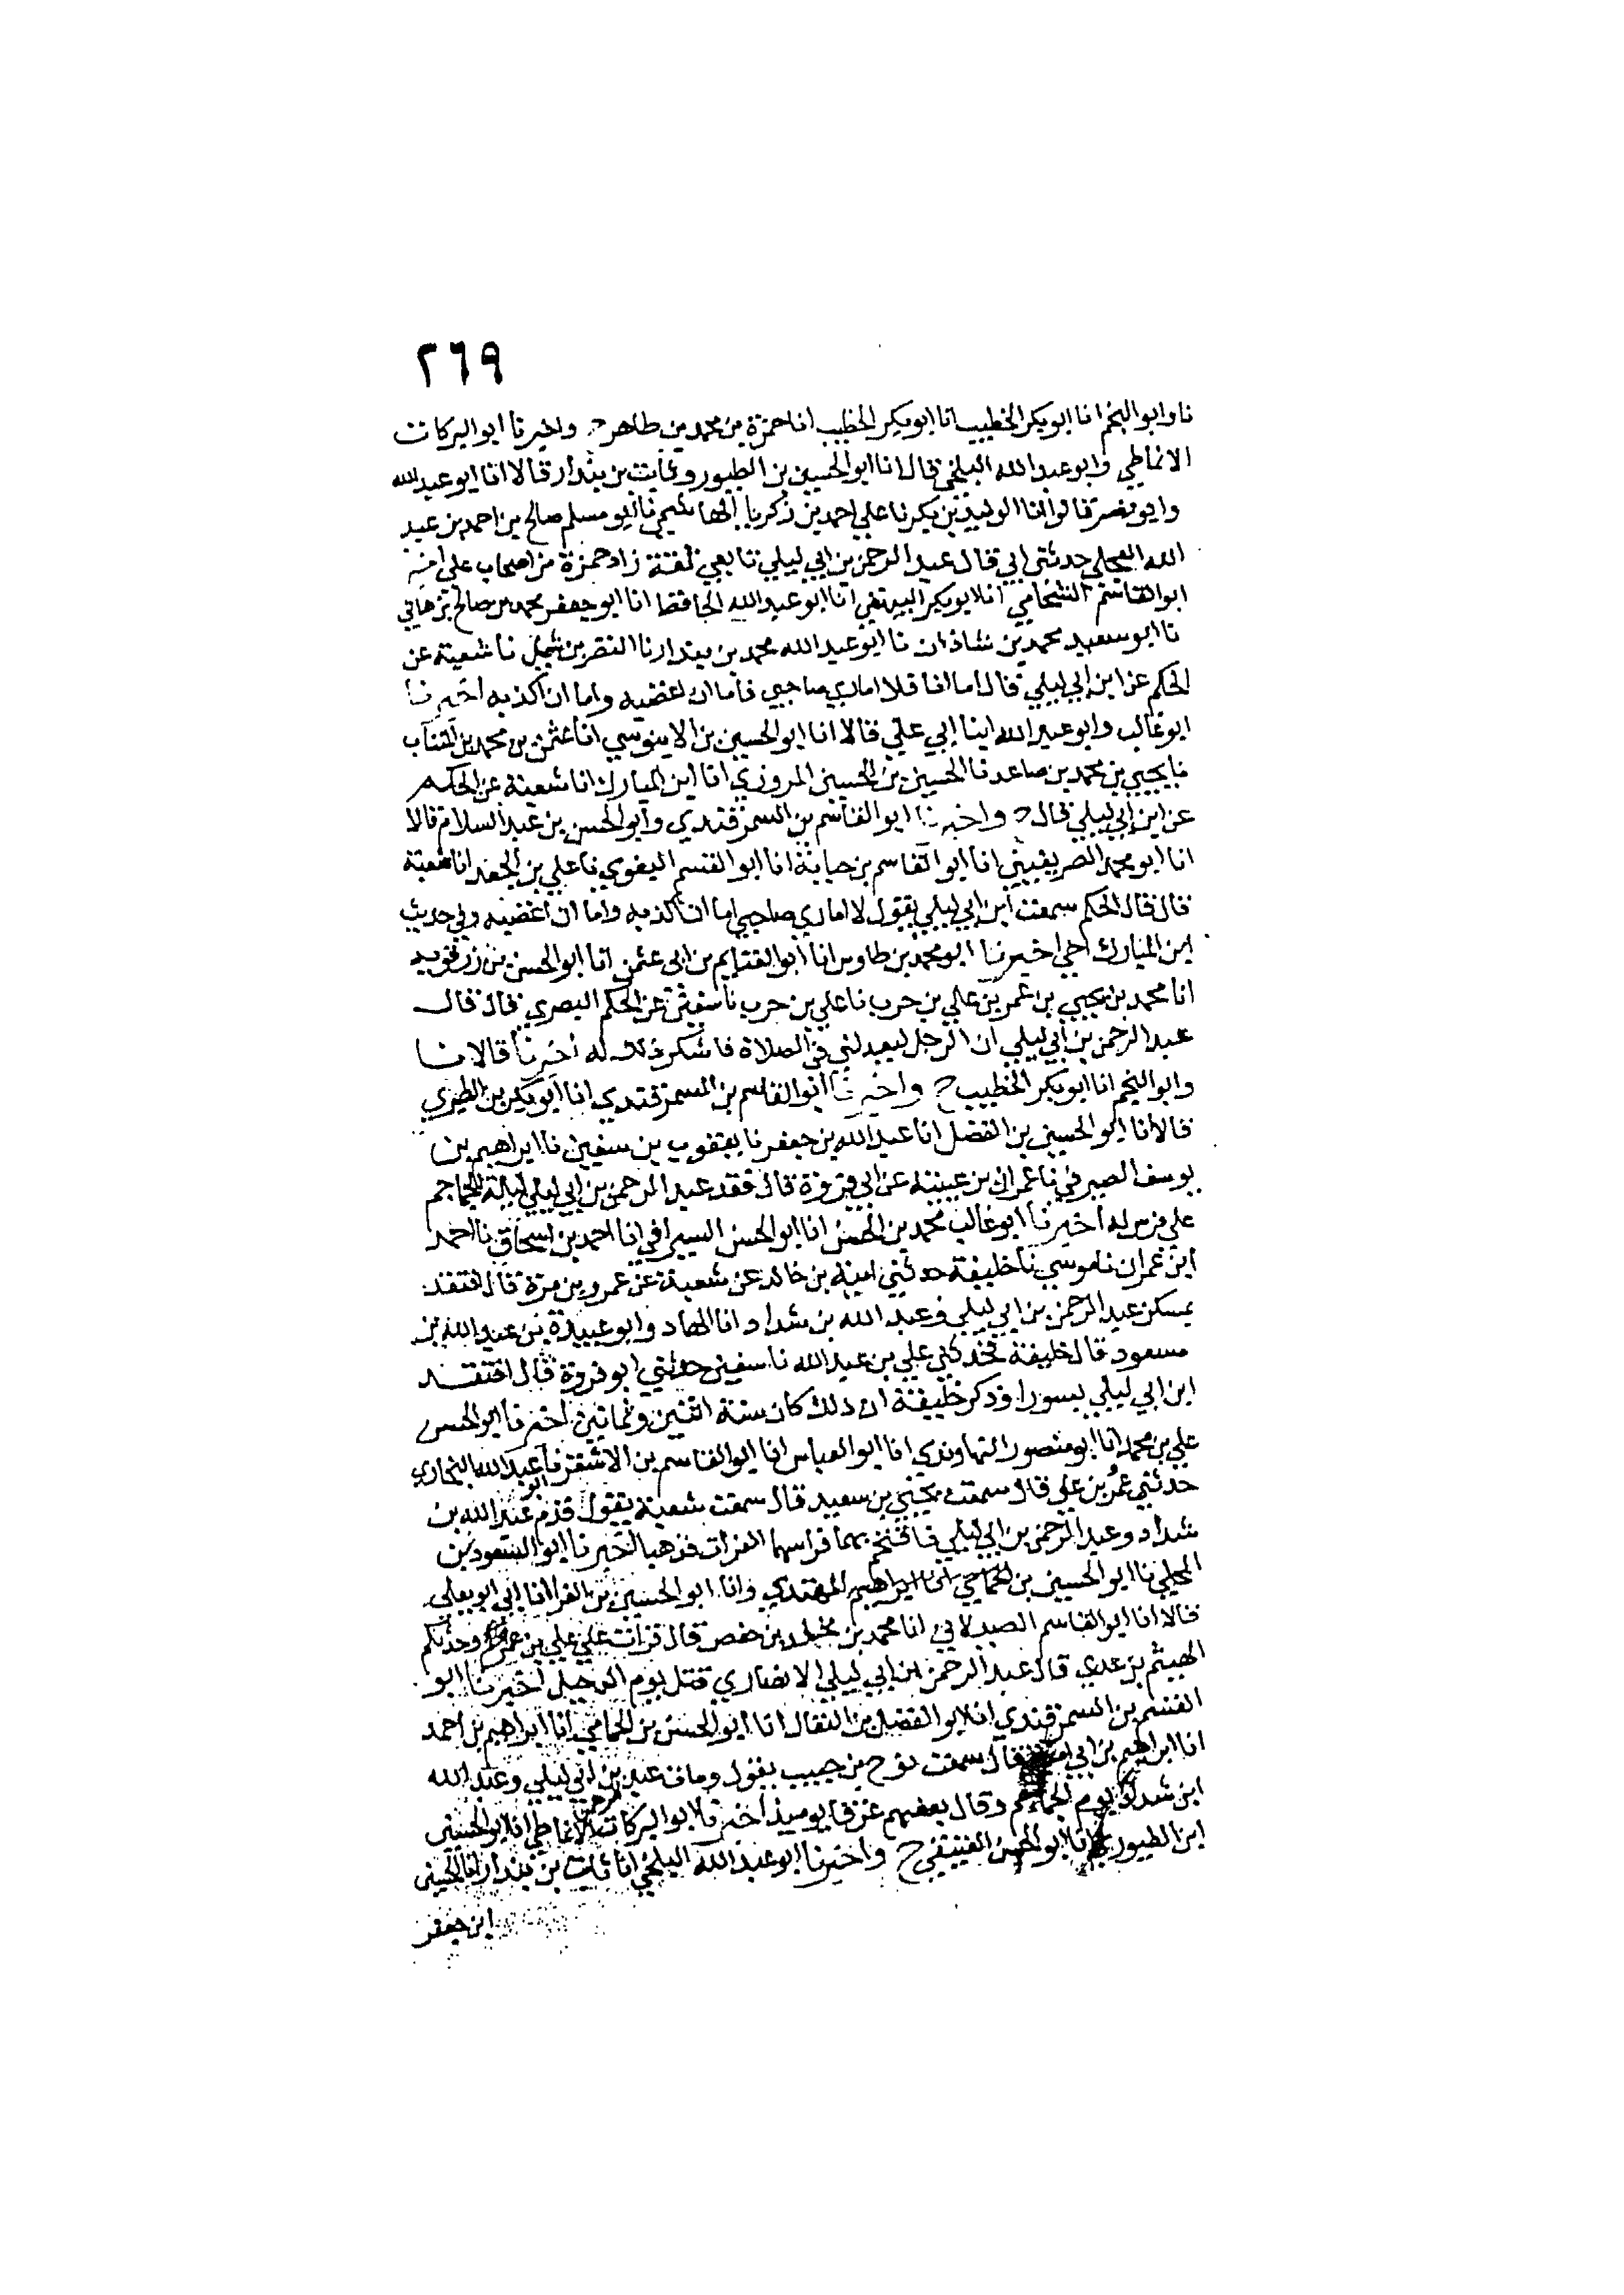 ٢٦٩
نا وابو النجم انا ابو بكر الخطيب انا ابو بكر الخطيب انا حمزة بن محمد بن طاهر ح واخبرنا ابو البركات
الانماطي وابو عبد الله البلخي قال انا ابو الحسين بن الطيور وثابت بن بندار قالا انا ابو عبد الله
وابو نصر قالوا انا الوليد بن بكر نا علي احمد بن زكريا الهاشمي نا ابو مسلم صالح بن احمد بن عبد
الله العجلي حدثني ابي قال عبد الرحمن بن ابي ليلي تابعي ثقة زاد حمزة من اصحاب علي
ابو القاسم الشحامي انا ابو بكر البيهقي انا ابو عبد الله الحافظ انا ابو جعفر محمد بن صالح بن هاني
نا ابو سعيد محمد بن شاذان نا ابو عبد الله محمد بن بندار نا النضر بن شميل نا شعبة عن
الحكم عن ابن ابي ليلي قال اما انا فلا اماري صاحبي فاما ان اغضبه واما ان اكذبه اخبرنا
ابو غالب وابو عبد الله ابنا ابي علي قالا انا ابو الحسين بن الابنوسي انا عثمن بن محمد بن المنتاب
نا يحيي بن محمد بن صاعد نا الحسين بن الحسين المروزي انا ابن المبارك انا شعبة عن الحكم
عن ابن ابي ليلي قال ح واخبرنا ابو القاسم بن السمرقندي وابو الحسن بن عبد السلام قالا
انا ابو محمد الصريفيني انا ابو القاسم بن حبابة انا ابو القسم البغوي نا علي بن الجعد انا شعبة
قال قال الحكم سمعت ابن ابي ليلي يقول لا اماري صاحبي اما ان اكذبه واما ان اغضبه وفي حديث
ابن المبارك اخي اخبرنا ابو محمد بن طاوس انا ابو الغنايم بن ابي عثمن انا ابو الحسن بن رزقويه
انا محمد بن يحيي بن عمر بن علي بن حرب نا علي بن حرب نا سفين عن الحكم البصري قال قال
عبد الرحمن بن ابي ليلي ان الرجل ليعدلني في الصلاة فاشكر ذلك له اخبرنا قالا نا
وابو النجم انا ابو بكر الخطيب ح واخبرنا ابو القاسم بن السمرقندي انا ابو بكر بن الطبري
قالا انا ابو الحسين بن الفضل انا عبد الله بن جعفر نا يعقوب بن سفين نا ابراهيم بن
يوسف الصيرفي نا عمران بن عيينة عن ابي فروة قال فقد عبد الرحمن بن ابي ليلي ليلة الجماجم
علي فرس له اخبرنا ابو غالب محمد بن الحسن انا ابو الحسن السيرافي انا احمد بن اسحاق نا احمد
ابن عمران نا موسي نا خليفة حدثني امية بن خالد عن شعبة عن عمرو بن مرة قال افتقد
بمسكن عبد الرحمن بن ابي ليلي وعبد الله بن شداد انا الهاد وابو عبيدة بن عبد الله بن
مسعود قال خليفة فحدثني علي بن عبد الله نا سفين حدثني ابو فروة قال افتقد
ابن ابي ليلي بسورا وذكر خليفة ان ذلك كان سنة اثنين وثمانين اخبرنا ابو الحسن
علي بن محمد انا ابو منصور النهاوندي انا ابو العباس انا ابو القاسم بن الاشقر نا عبد الله البخاري
ابو
حدثني عمر بن علي قال سمعت يحيي بن سعيد قال سمعت شعبة يقول قدم عبد الله بن
شداد وعبد الرحمن بن ابي ليلي فاقتحم بهما فراسهما الفرات فذهبا اخبرنا ابو السعود بن
المجلي نا ابو الحسين بن المهتدي وانا ابو الحسين بن الفرا انا ابي ابو يعلي
قالا انا ابو القاسم الصيدلاني انا محمد بن مخلد بن حفص قال قرات علي علي بن عمرو حدثكم
الهيثم بن عدي قال عبد الرحمن بن ابي ليلي الانصاري قتل يوم الدجيل اخبرنا ابو
القسم بن السمرقندي انا ابو الفضل بن البقال انا ابو الحسن بن الحمامي انا ابراهيم بن احمد
انا ابراهيم بن ابي قال سمعت نوح بن حبيب يقول ومات عبد بن ابي ليلي وعبد الله
الرحمن
ابن شداد يوم الجماجم وقال بعضهم غرقا يوميذ اخبرنا ابو البركات الانماطي انا ابو الحسين
ابن الطيوري انا ابو الحسن العتيقي ح واخبرنا ابو عبد الله البلخي انا ثابت بن بندار انا الحسين
ابن جعفر